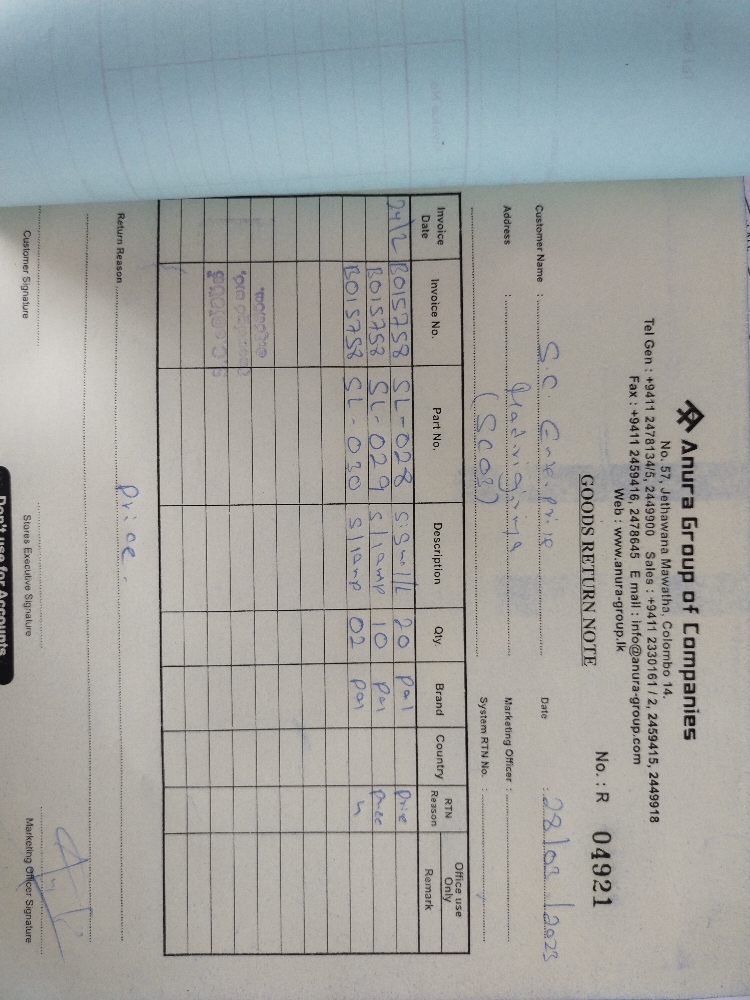 Anura Group of Companies
No. 57, Jethawana Mawatha, Colombo 14.
Tel Gen : +9411 2478134/5, 2449900 Sales : +9411 2330161 / 2, 2459415, 2449918
Fax : +9411 2459416, 2478645 E mail : info@anura-group.com
Web : www.anura-group.lk
GOODS RETURN NOTE
No. : R 04921
Customer Name : S.C. Enterprise
Date : 28/02/2023
Address :
(SC03)
Marketing Officer :
System RTN No. :
Invoice Date Invoice No. Part No. Description Qty. Brand Country RTN Reason Office use Only Remark
24/2 B015758 SL-028 20 pal
B015758 SL-029 s/lamp 10 pal
B015758 SL-030 s/lamp 02 pal
Return Reason price.
Customer Signature
Stores Executive Signature
Marketing Officer Signature
Don't use for Accounts